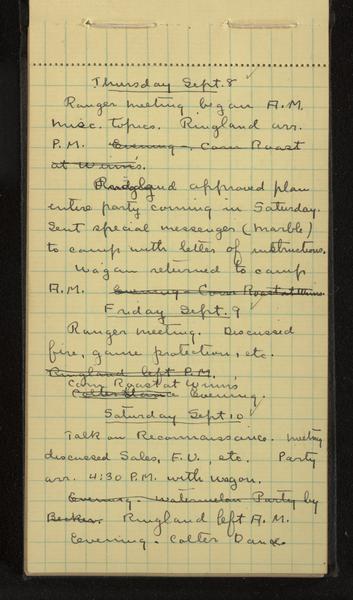 Thursday Sept. 8
Ranger meeting began A.M.
Misc. topics. Ringland arr.
P.M. Evening - Corn Roast
at Winn's.
Ringland approved plan
entire party coming in Saturday.
Sent special messenger (Marble)
to camp with letter of instructions.
Wagon returned to camp
A.M. Evening - Corn Roast at Winns
Friday Sept. 9
Ranger meeting. Discussed
fire, game protection, etc.
Ringland left P.M.
Corn Roast at Winn's
Colter Dance Evening.
Saturday Sept 10
Talk on Reconnaissance. Meeting
discussed Sales, F.U., etc. Party
arr. 4:30 P.M. with wagon.
Evening - Watermelon Party by
Becker. Ringland left A.M.
Evening - Colter Dance